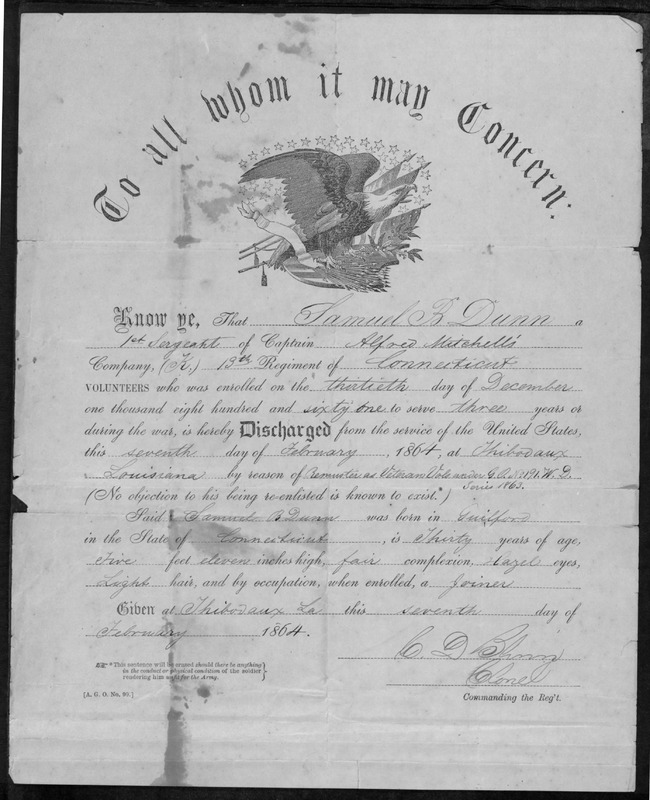 To all whom it may Concern:
Know ye, That Samuel B Dunn a
1st Sergeant of Captain Alfred Mitchell's
Company, (K.) 13th Regiment of Connecticut
VOLUNTEERS who was enrolled on the thirtieth day of December
one thousand eight hundred and sixty one to serve three years or
during the war, is hereby Discharged from the service of the United States,
this seventh day of February, 1864, at Thibodaux
Louisiana by reason of Remuster as Veteran Vols under G.O. No 191. W.D.
Series 1863.
(No objection to his being re-enlisted is known to exist.*)
Said Samuel B Dunn was born in Guilford
in the State of Connecticut, is Thirty years of age,
Five feet eleven inches high, fair complexion, Hazel eyes,
Light hair, and by occupation, when enrolled, a Joiner
Given at Thibodaux La this seventh day of
February 1864.
C. D. Blinn
Colonel
Commanding the Reg't.
*This sentence will be erased should there be anything
in the conduct or physical condition of the soldier
rendering him unfit for the Army.
[A. G. O. No. 99.]